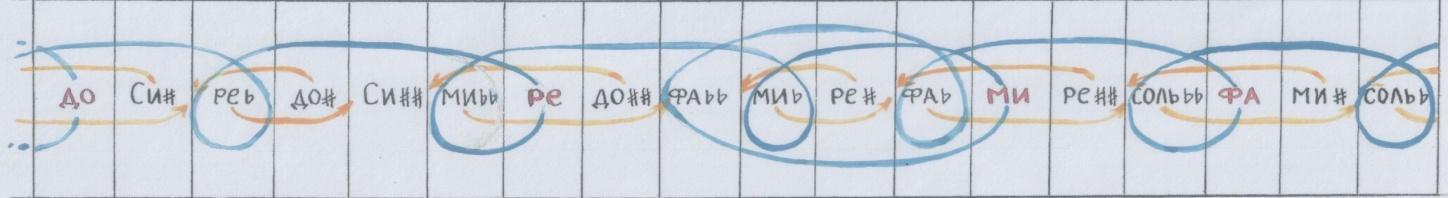 ДО СИ# РЕЬ ДО# СИ## МИЬЬ РЕ ДО## ФАЬЬ МИЬ РЕ# ФАЬ МИ РЕ## СОЛЬЬЬ ФА МИ# СОЛЬЬ